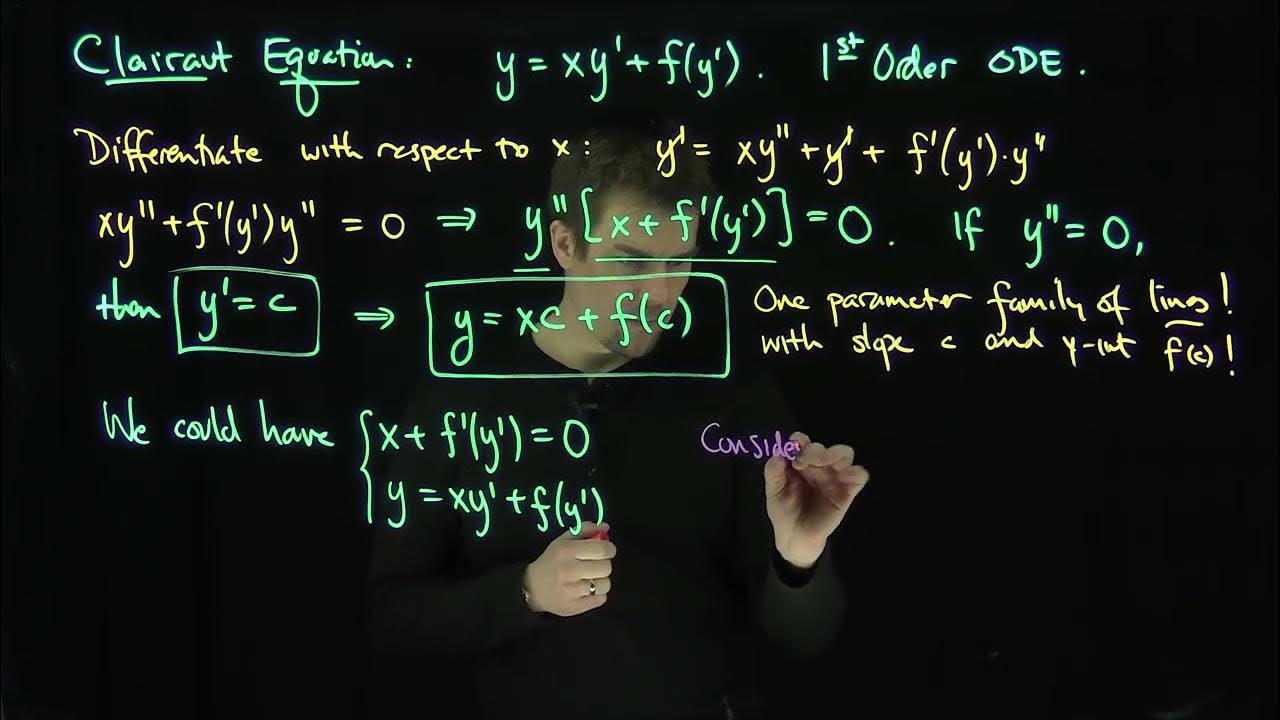 Clairaut Equation: y = xy' + f(y'). 1st Order ODE.
Differentiate with respect to x: y' = xy" + y' + f'(y')·y"
xy" + f'(y')y" = 0 ⇒ y"[x + f'(y')] = 0. If y" = 0,
then y' = c ⇒ y = xc + f(c) One parameter family of lines!
with slope c and y-int f(c)!
We could have { x + f'(y') = 0
y = xy' + f(y')
Consider